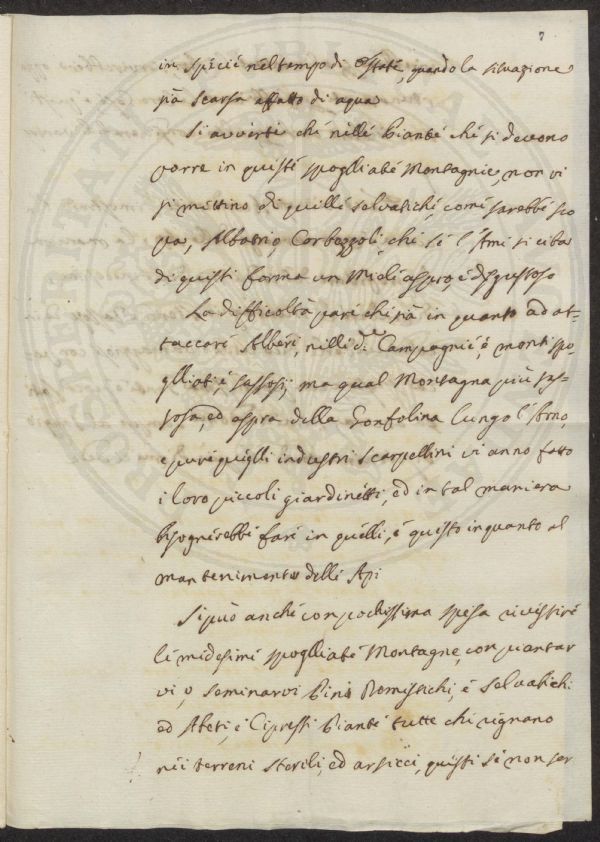 7
in specie nel tempo di Estate, quando la situazione
sia scarsa affatto di aqua
Si avverte che nelle Piante che si devono
porre in queste spogliate Montagnie, non vi
si mettino di quelle salvatiche, come sarebbe sco
pa, Albatrio, Corbezzoli, che se l'Ami si ciba
di questi forma un Miele aspro, e disgustoso
La difficoltà pare che sia in quanto ad at-
taccare Alberi, nelle de Campagnie, e monti spo-
gliati, e sassosi, ma qual Montagna più sas-
sosa, ed aspra della Gonfolina lungo l'Arno,
e pure quegli industri scarpellini vi anno fatto
i loro piccoli giardinetti, ed in tal maniera
bisognerebbe fare in quelli, e questo in quanto al
mantenimento delle Api
Si può anche con pochissima spesa rivestire
le medesime spogliate Montagne, con piantar
vi, o seminarvi Pini Domistichi, e Salvatichi
ed Abeti, e Cipressi Piante tutte che vegnano
nei terreni sterili, ed arsicci, questi se non ser